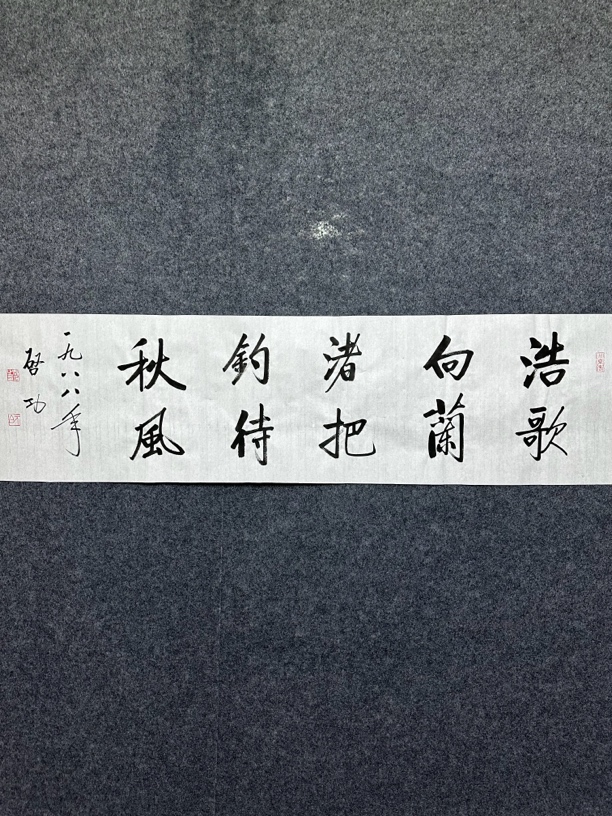 浩歌
向蘭
渚把
釣待
秋風
一九八八年
啓功